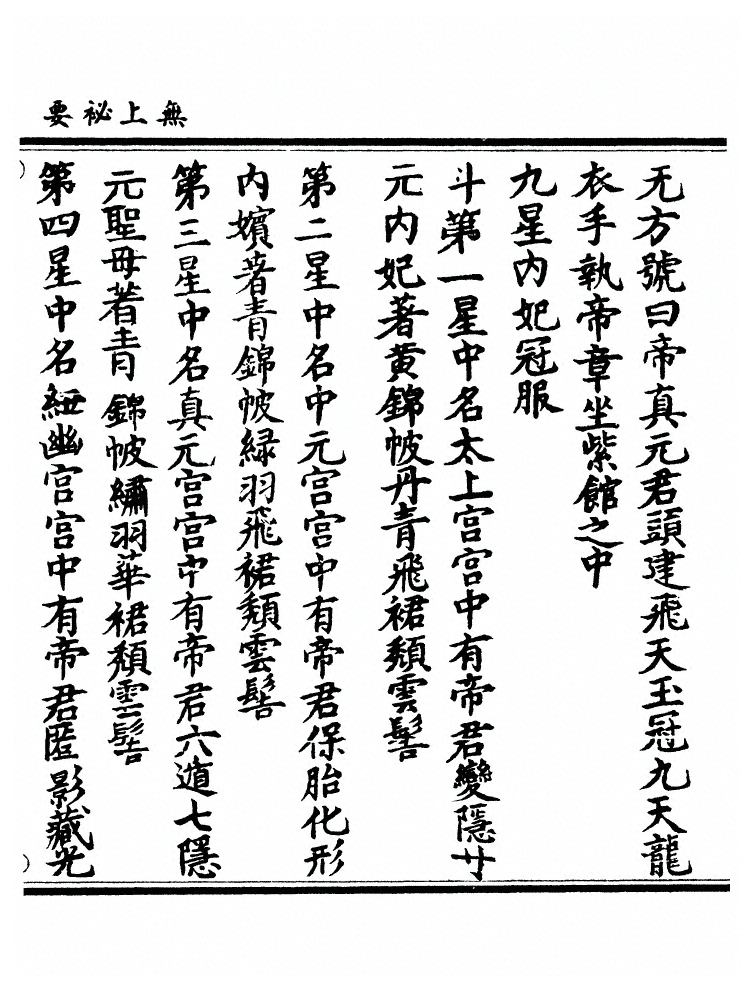 無上祕要
无方號曰帝真元君頭建飛天玉冠九天龍
衣手執帝章坐紫館之中
九星内妃冠服
斗第一星中名太上宫宫中有帝君變隱廾
元内妃著黄錦帔丹青飛裙頹雲髻
第二星中名中元宫宫中有帝君保胎化形
内嬪著青錦帔緑羽飛裙頹雲髻
第三星中名真元宫宫中有帝君六遁七隱
元聖母著青錦帔繡羽華裙頹雲髻
第四星中名紐幽宫宫中有帝君匿影藏光